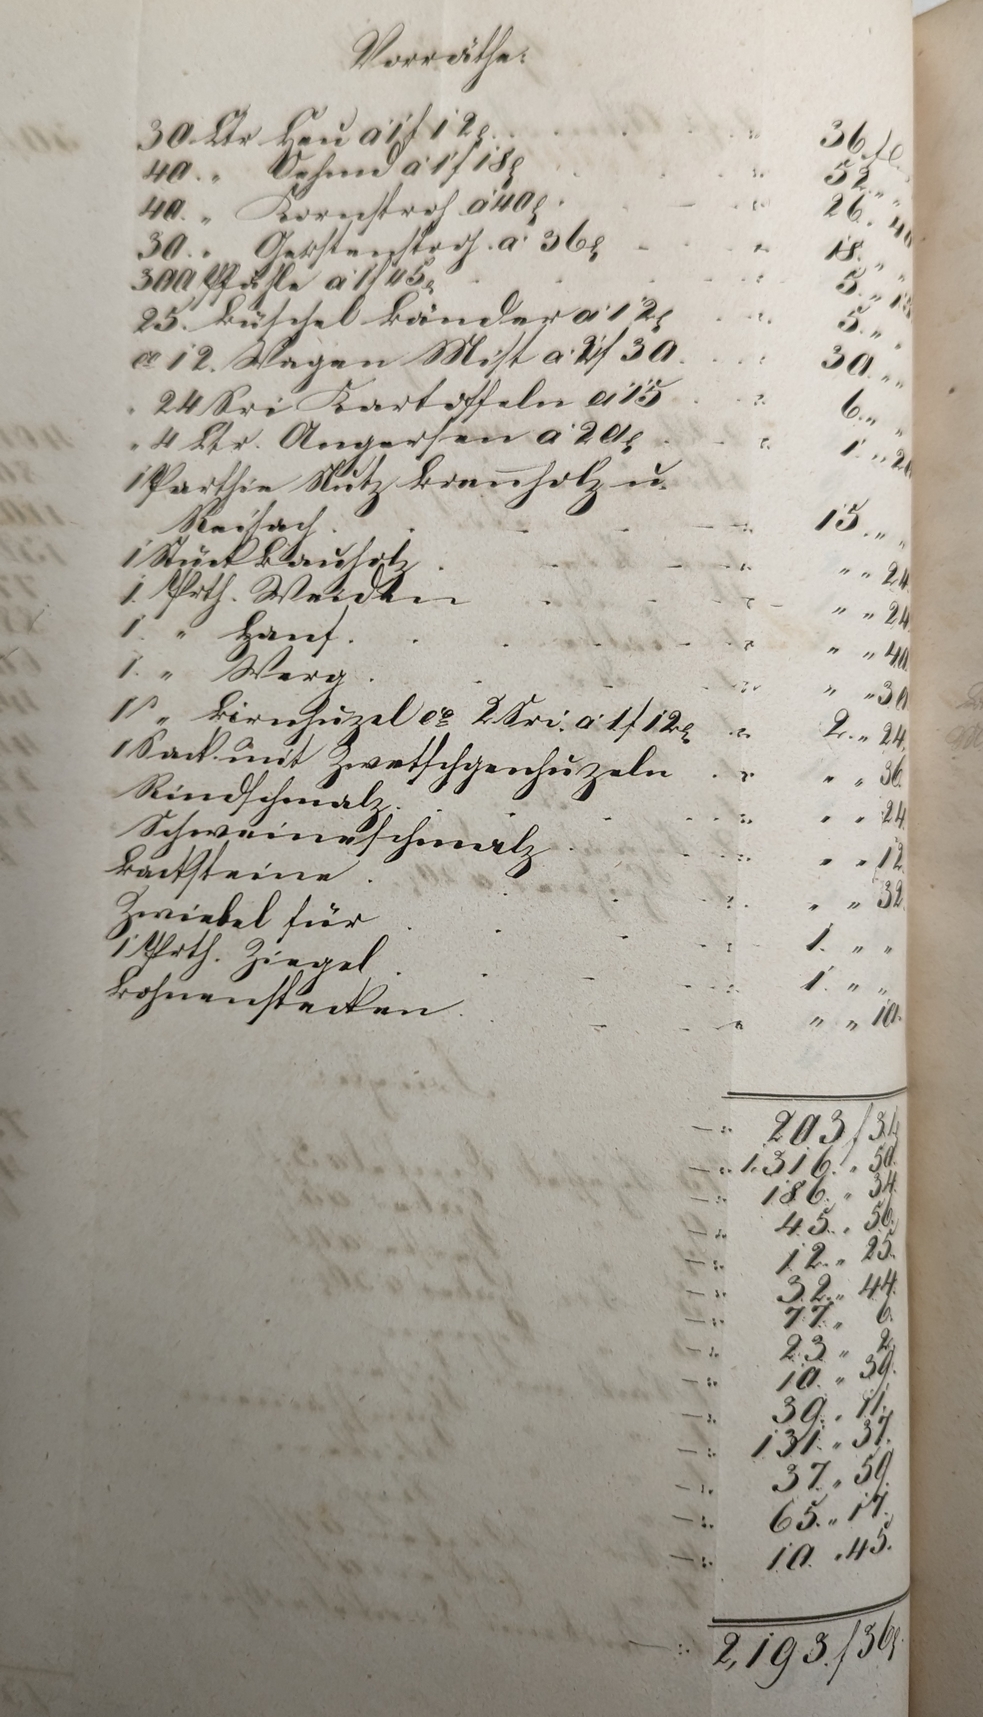 Vorräthe:
30 Ctr Heu à 1 f 12 x. " 36 f
40. " Oehmd à 1 f 18 x " 52. " "
40. " Kornstroh à 40 x " 26. 40
30. " Gerstenstroh à 36 x " 18. " "
300 Pfähle à 1 f 45 x " 5. " 15
25. Büschel Bänder à 12 x " 5. " "
ca 12. Wagen Mist à 2 f 30 " 30. " "
" 24 Sri Kartoffeln à 15 " 6. " "
" 4 Ctr. Angersen à 20 x " 1. " 20
1 Parthie Nutz Brennholz u.
Reisach. " 15. " "
1 Stück Bauholz " " " 24
1. Prth. Weiden " " " 24
1. " Hanf. " " " 40
1. " Werg. " " " 30
1 " Birnhuzel ca 2 Sri. à 1 f 12 x " 2. " 24.
1 Sack mit Zwetschgenhuzeln " " " 36.
Rindschmalz. " " " 24
Schweineschmalz " " " 12
Backsteine. " " " 32.
Zwiebel für " 1. " "
1 Prth. Ziegel " 1. " "
Bohnenstecken " " " 10.
—: 203 f 31
—: 1.316. " 50.
—: 186. " 34.
—: 45. " 56.
—: 12. " 25.
—: 32. " 44.
—: 77. " 6.
—: 23 " 2.
—: 10. " 39.
—: 39. " 11.
—: 131. " 37.
—: 37. " 59.
—: 65. " 17.
—: 10. " 45.
—: 2,193. f 36 x.